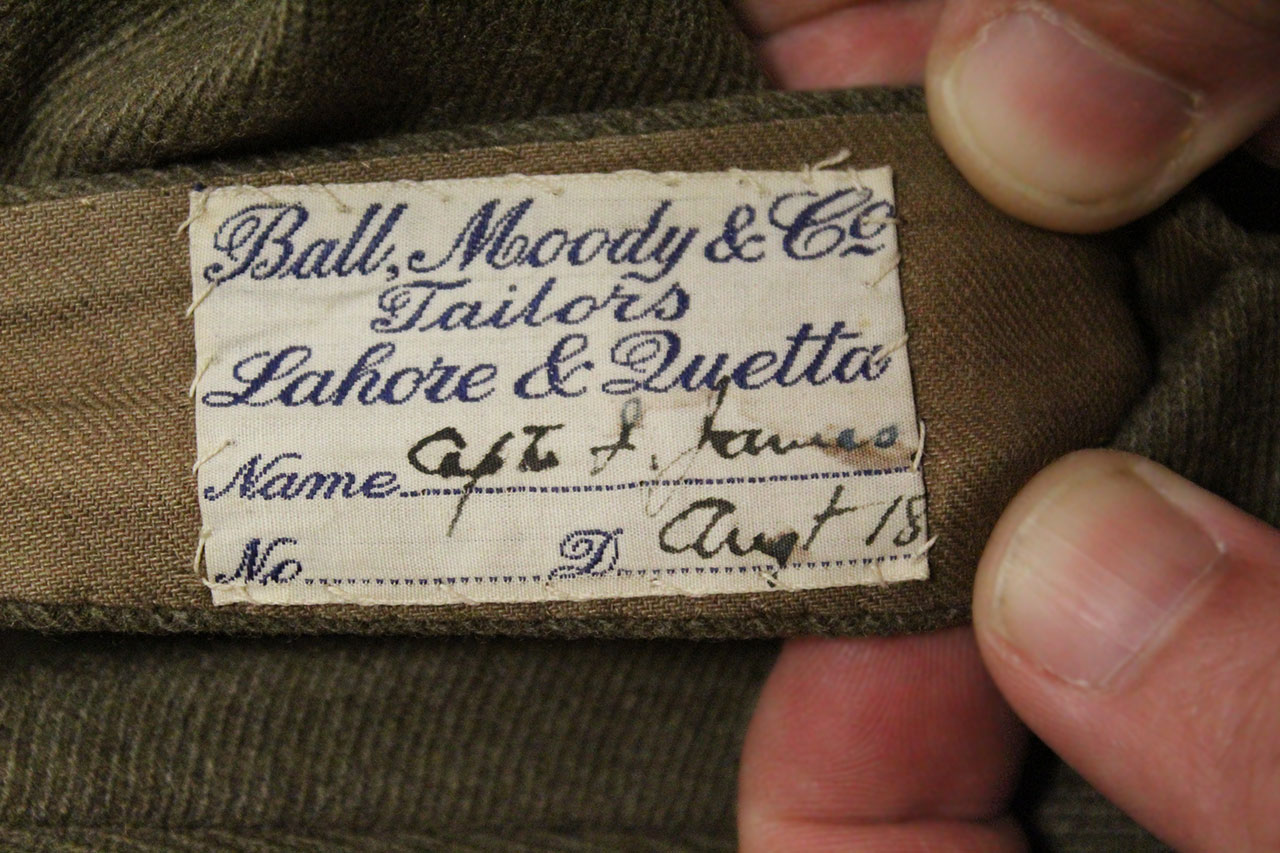 Ball, Moody & Co
Tailors
Lahore & Quetta
Name Capt. J. James
No D. Aug 18